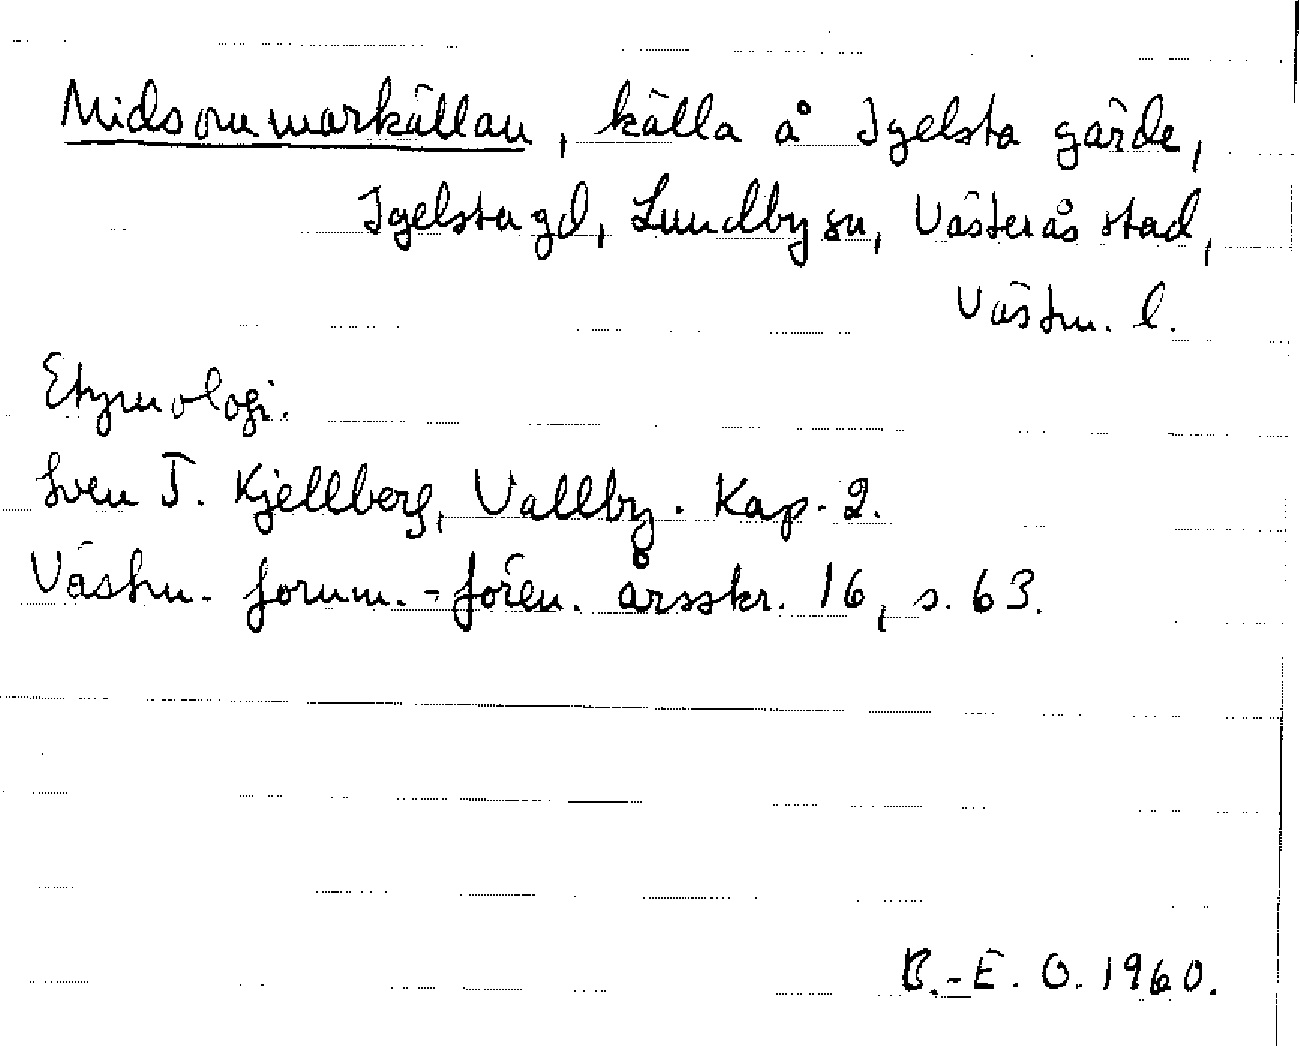 Midsommarkällan, källa å Igelsta gärde,
Igelsta gd, Lundby sn, Västerås stad,
Västm. l.
Etymologi.
Sven T. Kjellberg, Vallby. Kap. 2.
Västm. fornm.-fören. årsskr. 16, s. 63.
B.-E. O. 1960.